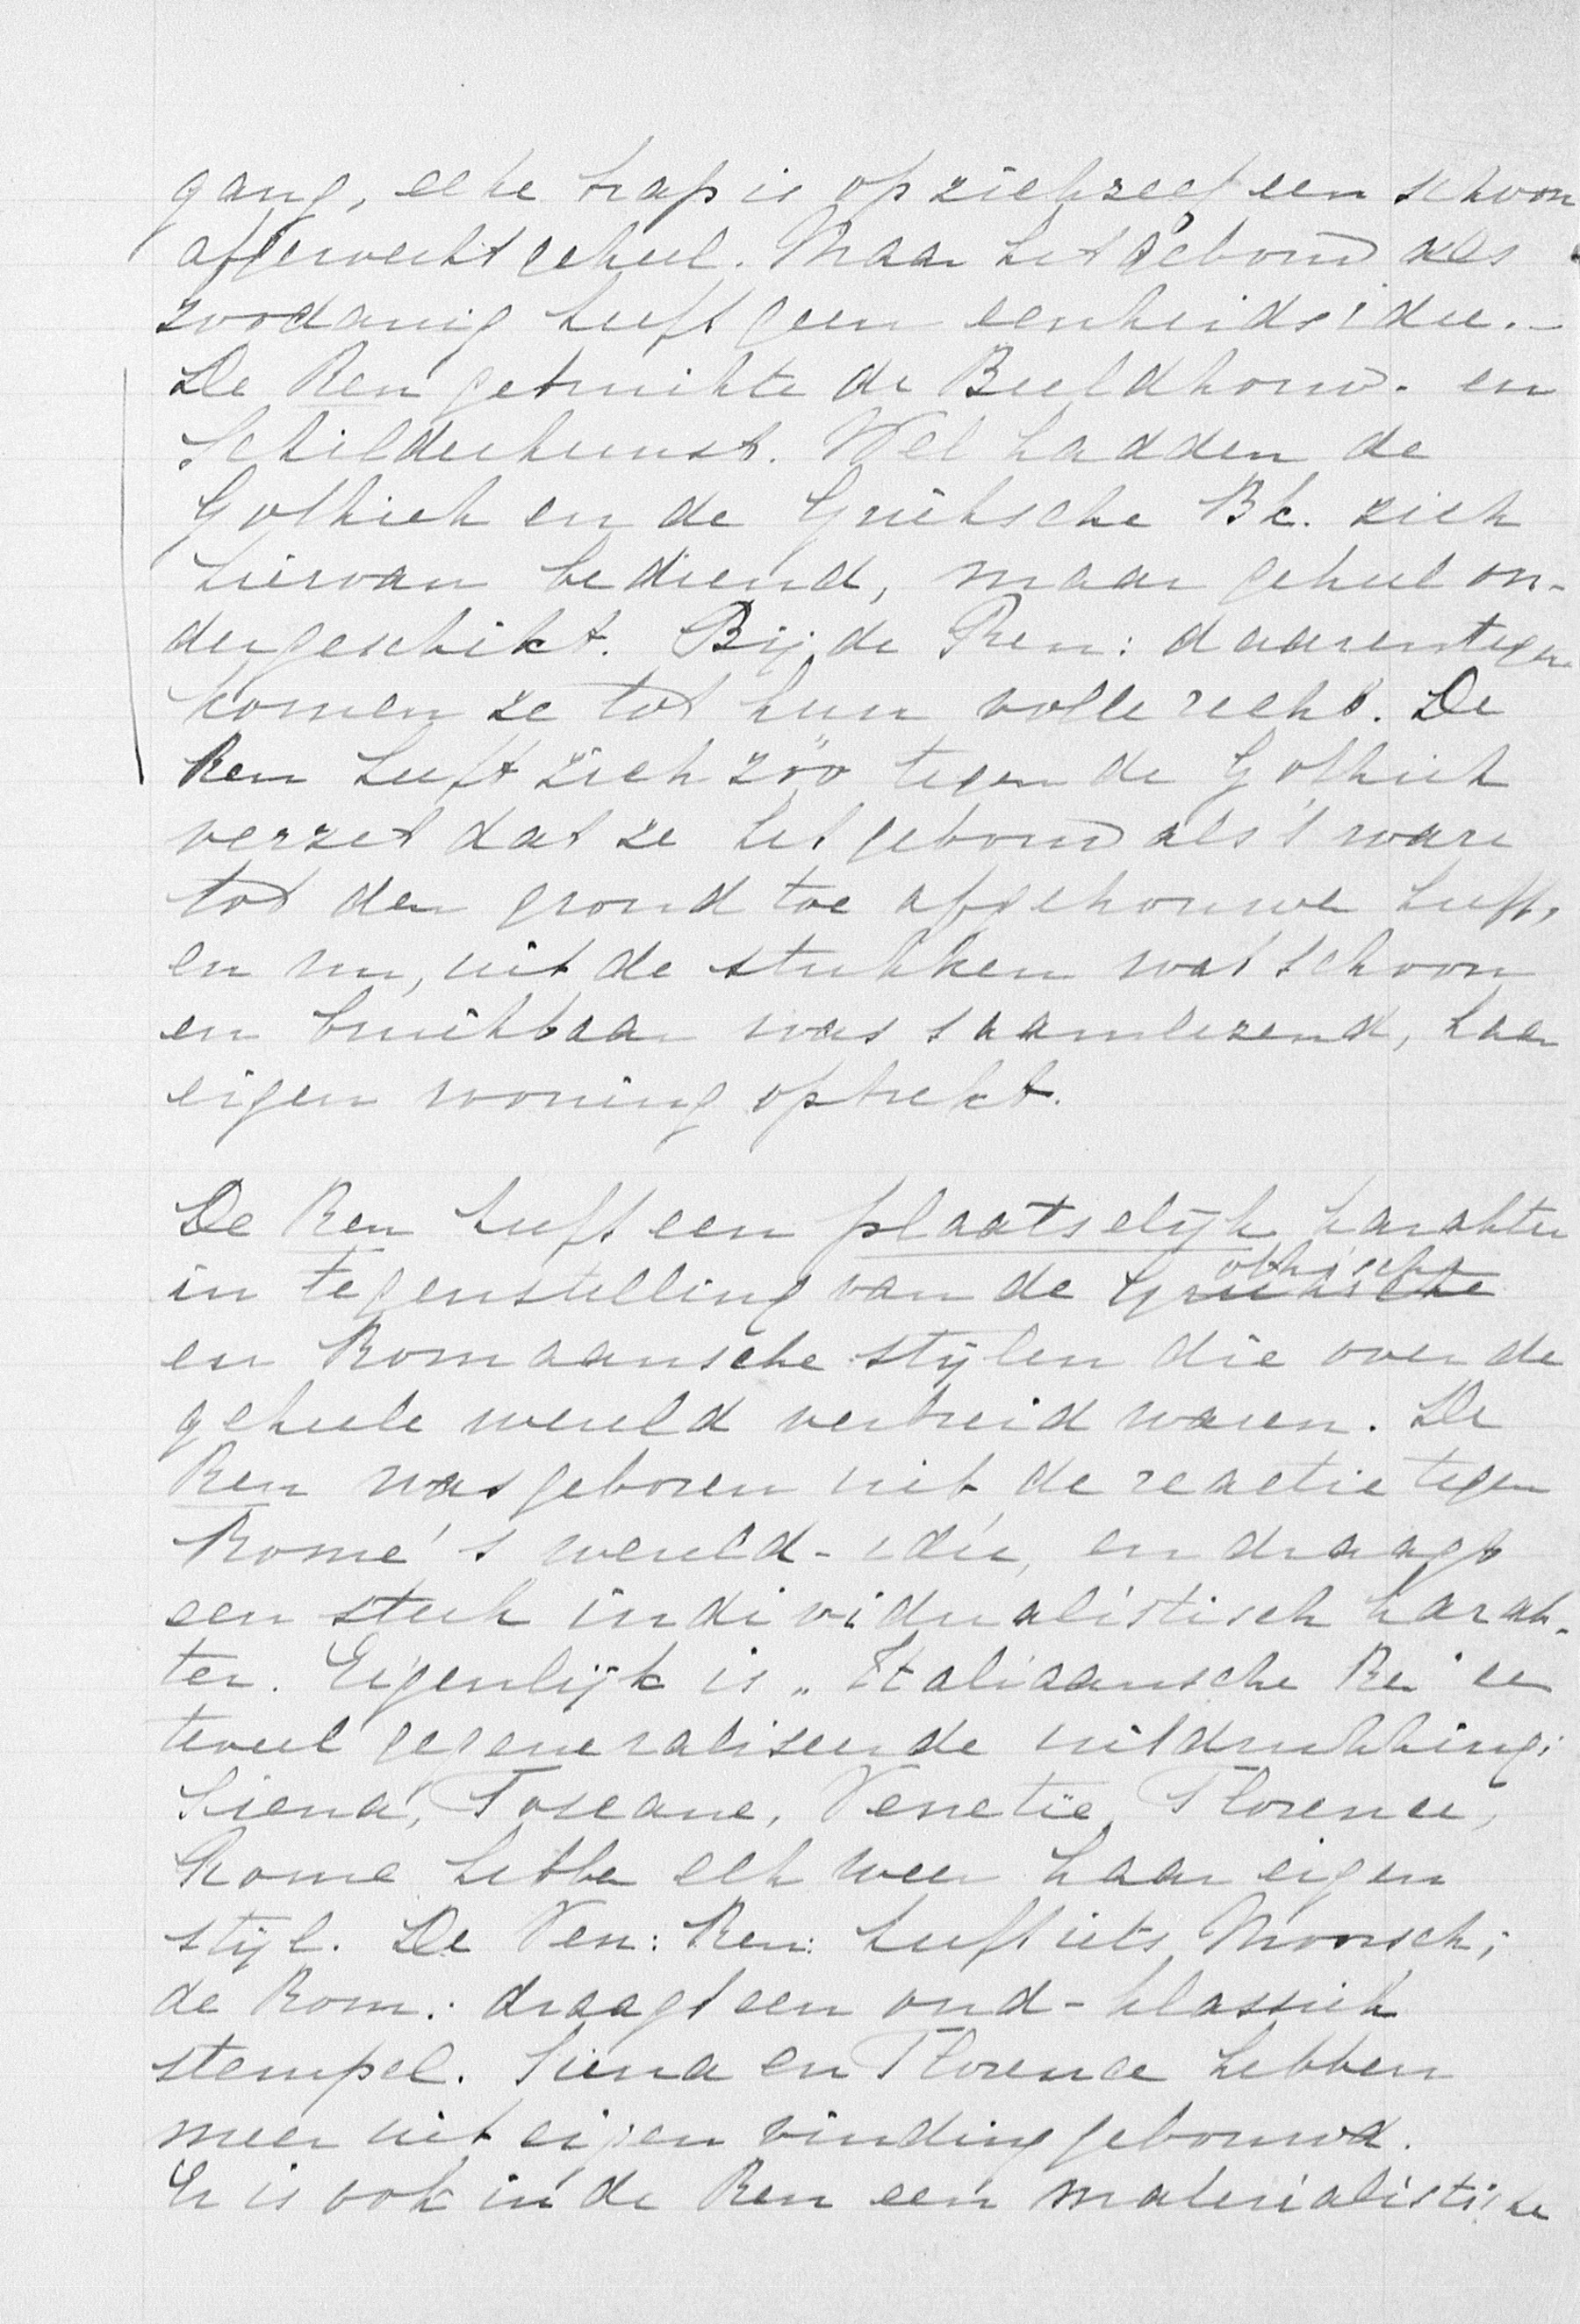 gang, elke trap is op zichzelf een schoon
afgewerkt geheel. Maar het gebouw als
zoodanig heeft geen eenheidsidee.-
De Ren gebruikte de Beeldhouw- en
Schilderkunst. Wel hadden de
Gothiek en de Grieksche Bk. zich
hiervan bediend, maar geheel on-
dergeschikt. Bij de Ren: daarentegen
komen ze tot hun volle recht. De
Ren heeft zich zóó tegen de Gothiek
verzet dat ze het gebouw als 't ware
tot den grond toe afgehouwe heeft,
en nu, uit de stukken wat schoon
en bruikbaar was saamlezend, haar
eigen woning optrekt.
De Ren heeft een plaatselijk karakter
in tegenstelling van de Grieksche othische
en Romaansche stijlen die over de
geheele wereld verbreid waren. De
Ren was geboren uit de reactie tegen
Rome's wereld-idée, en draagt
een sterk individualistisch karak-
ter. Eigenlijk is „Italiaansche Re" ee
teveel gegeneraliseerde uitdrukking:
Siena, Toscane, Venetië, Florence,
Rome hebbe elk weer haar eigen
stijl. De Ven: Ren: heeft iets Moorsch;
de Rom.: draagt een oud-klassiek
stempel. Siena en Florence hebben
meer uit eigen vinding gebouwd.
Er is ook in de Ren een materialistische